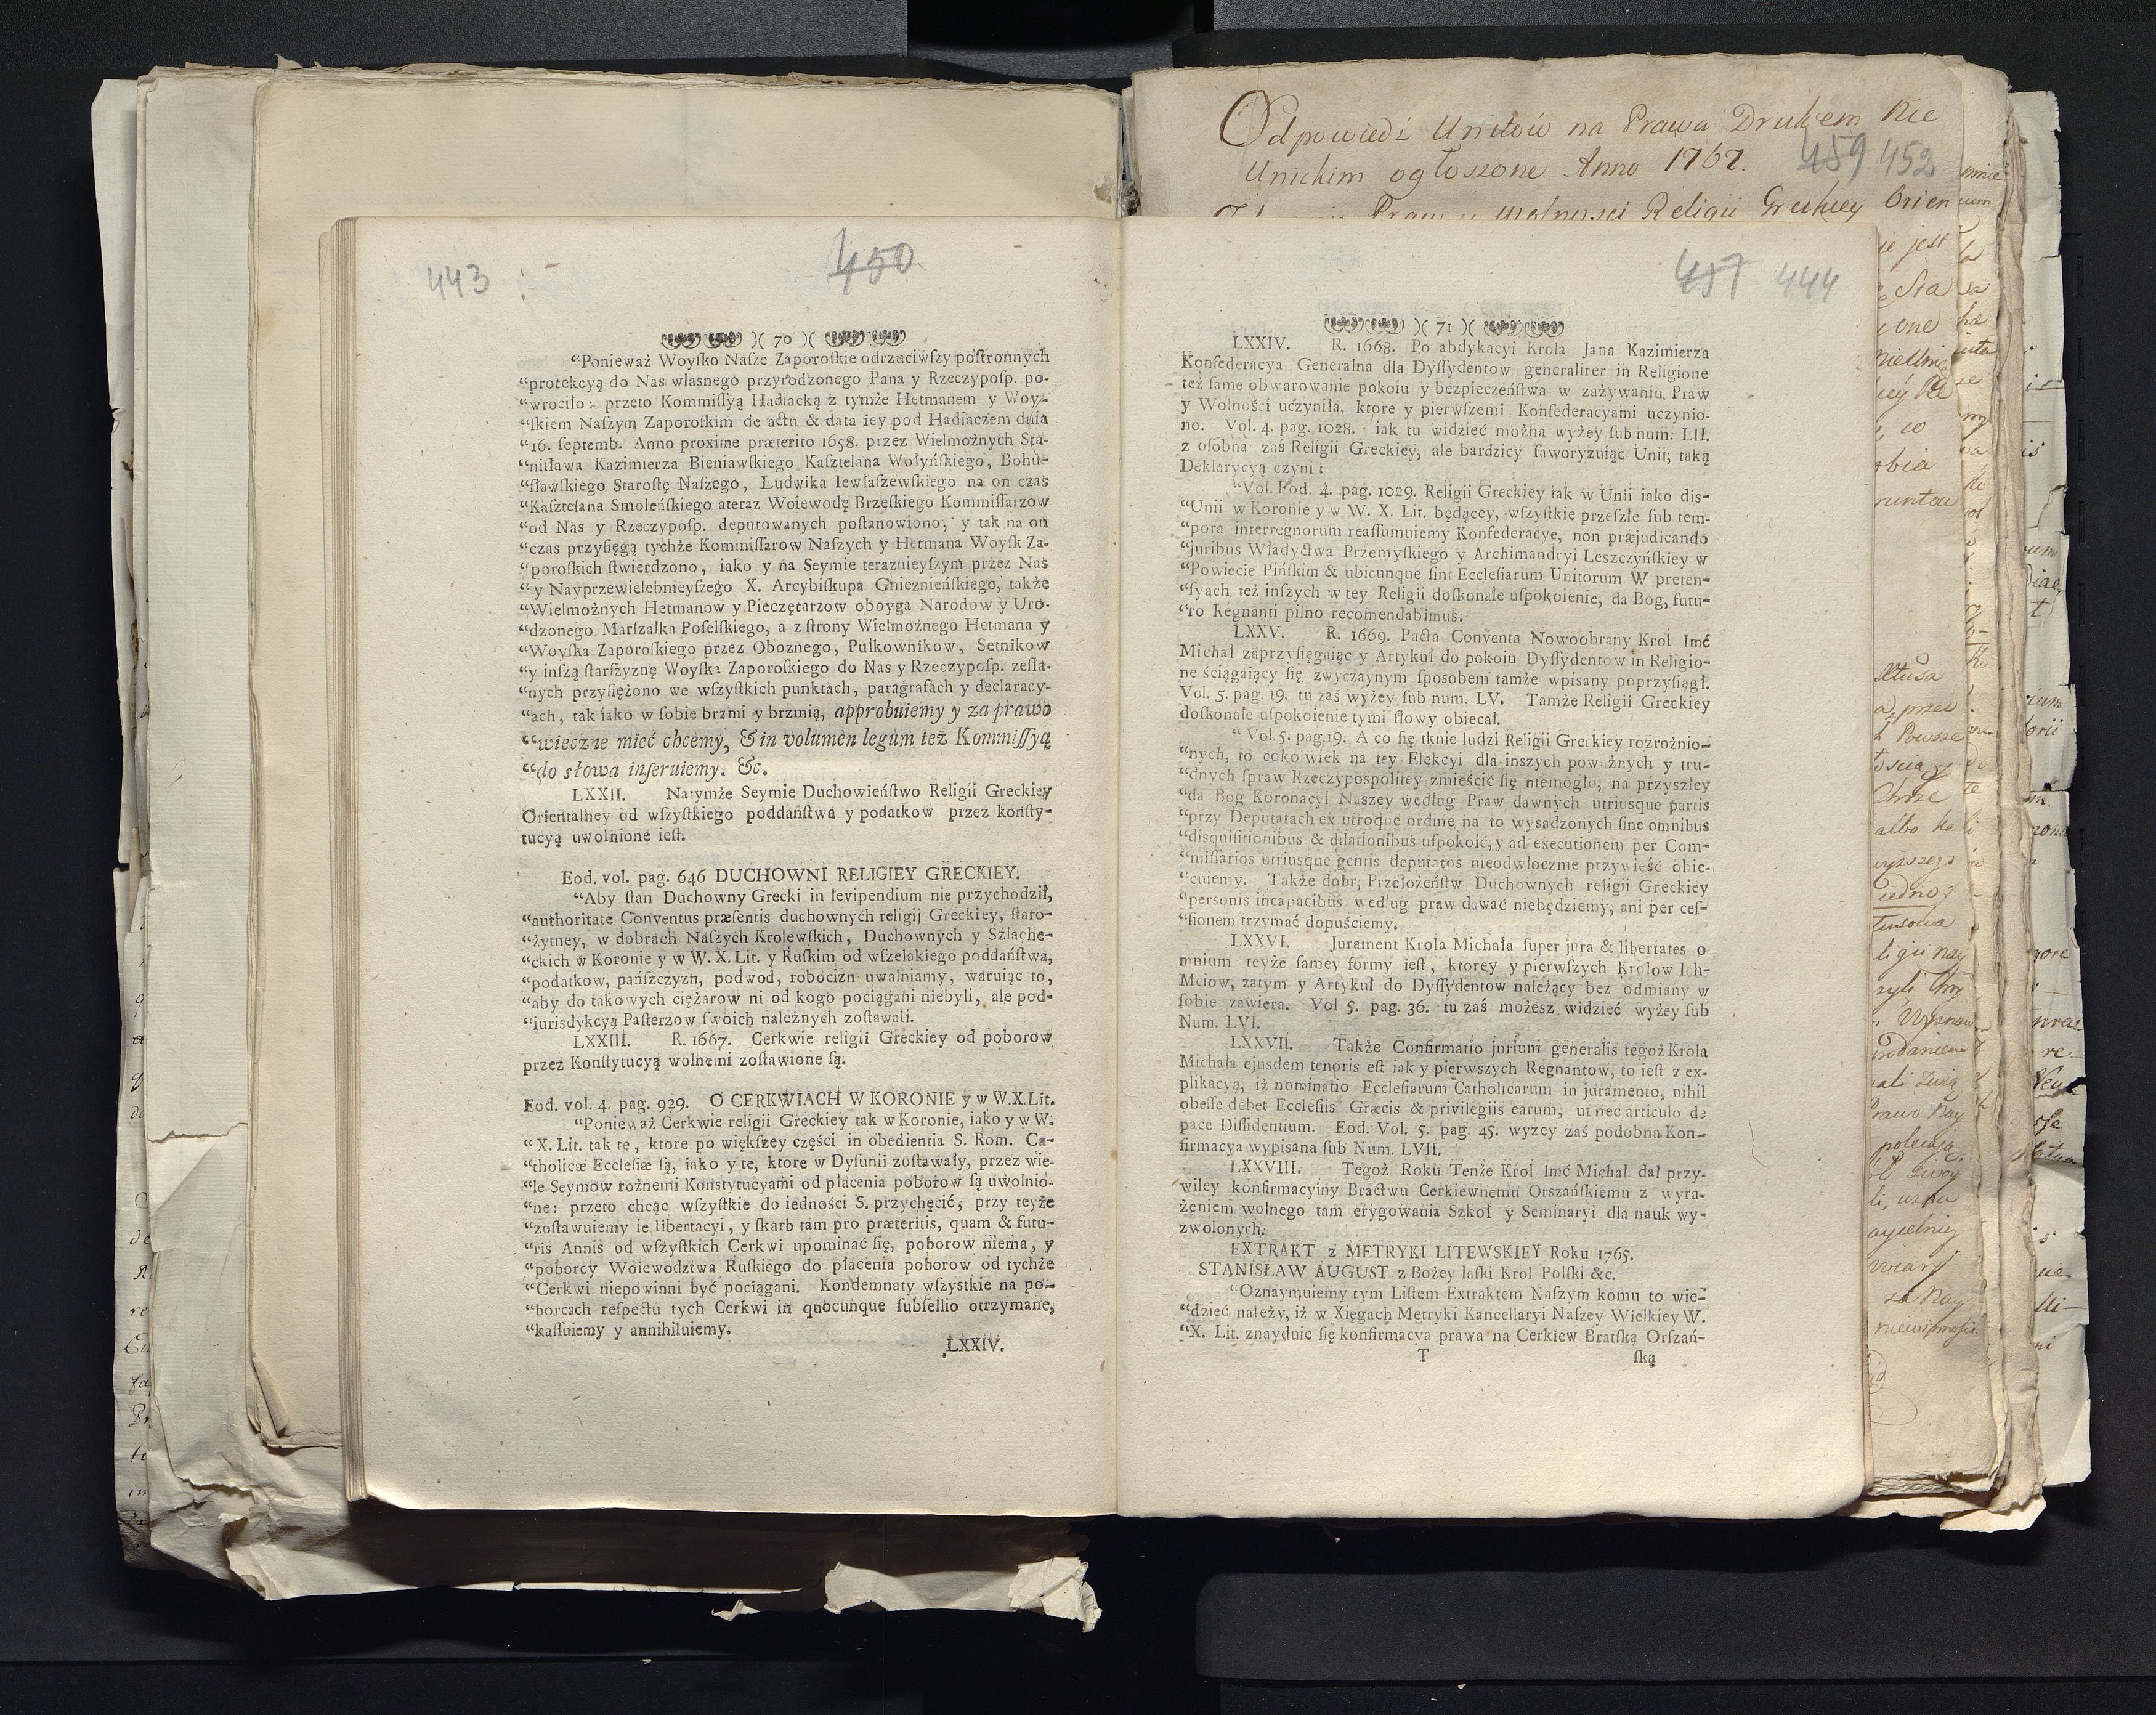 443
450
)( 70 )(
“Ponieważ Woyſko Naſze Zaporoſkie odrzuciwſzy poſtronnych
“protekcyą do Nas własnego przyrodzonego Pana y Rzeczypoſp. po-
“wrociło: przeto Kommiſſyą Hadiacką z tymże Hetmanem y Woy-
“ſkiem Naſzym Zaporoſkim de actu & data iey pod Hadiaczem dnia
“16. ſeptemb. Anno proxime præterito 1658. przez Wielmożnych Sta-
“niſława Kazimierza Bieniawſkiego Kaſztelana Wołyńſkiego, Bohu-
“ſławſkiego Staroſtę Naſzego, Ludwika Iewlaſzewſkiego na on czas
“Kaſztelana Smoleńſkiego ateraz Woiewodę Brzeſkiego Kommiſſarzow
“od Nas y Rzeczypoſp. deputowanych poſtanowiono, y tak na on
“czas przyſięgą tychże Kommiſſarow Naſzych y Hetmana Woyſk Za-
“poroſkich ſtwierdzono, iako y na Seymie teraznieyſzym przez Nas
“y Nayprzewielebnieyſzego X. Arcybiſkupa Gnieznieńſkiego, także
“Wielmożnych Hetmanow y Pieczętarzow oboyga Narodow y Uro-
“dzonego Marſzałka Poſelſkiego, a z ſtrony Wielmożnego Hetmana y
“Woyſka Zaporoſkiego przez Oboznego, Pułkownikow, Setnikow
“y inſzą ſtarſzyznę Woyſka Zaporoſkiego do Nas y Rzeczypoſp. zeſła-
“nych przyſiężono we wſzyſtkich punktach, paragrafach y declaracy-
“ach, tak iako w ſobie brzmi y brzmią, approbuiemy y za prawo
“wieczne mieć chcemy, & in volumen legum też Kommiſſyą
“do słowa inſeruiemy. &c.
LXXII. Natymże Seymie Duchowieńſtwo Religii Greckiey
Orientalney od wſzyſtkiego poddańſtwa y podatkow przez konſty-
tucyą uwolnione ieſt.
Eod. vol. pag. 646 DUCHOWNI RELIGIEY GRECKIEY.
“Aby ſtan Duchowny Grecki in levipendium nie przychodził,
“authoritate Conventus præſentis duchownych religij Greckiey, ſtaro-
“żytney, w dobrach Naſzych Krolewſkich, Duchownych y Szlache-
“ckich w Koronie y w W. X. Lit. y Ruſkim od wſzelakiego poddańſtwa,
“podatkow, pańſzczyzn, podwod, robocizn uwalniamy, waruiąc to,
“aby do takowych ciężarow ni od kogo pociągani niebyli, ale pod-
“iurisdykcyą Paſterzow ſwoich należnych zoſtawali.
LXXIII. R. 1667. Cerkwie religii Greckiey od poborow
przez Konſtytucyą wolnemi zoſtawione ſą.
Eod. vol. 4. pag. 929. O CERKWIACH W KORONIE y w W.X.Lit.
“Ponieważ Cerkwie religii Greckiey tak w Koronie, iako y w W.
“X. Lit. tak te, ktore po więkſzey części in obedientia S. Rom. Ca-
“tholicæ Eccleſiæ ſą, iako y te, ktore w Dyſunii zoſtawały, przez wie-
“le Seymow rożnemi Konſtytucyami od płacenia poborow ſą uwolnio-
“ne: przeto chcąc wſzyſtkie do iedności S. przychęcić, przy teyże
“zoſtawuiemy ie libertacyi, y ſkarb tam pro præteritis, quam & futu-
“ris Annis od wſzyſtkich Cerkwi upominać ſię, poborow niema, y
“poborcy Woiewodztwa Ruſkiego do płacenia poborow od tychże
“Cerkwi niepowinni być pociągani. Kondemnaty wſzyſtkie na po-
“borcach reſpectu tych Cerkwi in quocunque ſubſellio otrzymane,
“kaſſuiemy y annihiluiemy.
LXXIV.
Odpowiedź Unitow na Prawa Drukem Nie
Unickim ogłoszone Anno 1767. 459 452
Praw y wolnosci Religii Greckiey Orien
457 444
)( 71 )(
LXXIV. R. 1668. Po abdykacyi Krola Jana Kazimierza
Konfederacya Generalna dla Dyſſydentow generaliter in Religione
też ſame obwarowanie pokoiu y bezpieczeńſtwa w zażywaniu Praw
y Wolności uczyniła, ktore y pierwſzemi Konfederacyami uczynio-
no. Vol. 4. pag. 1028. iak tu widzieć można wyżey ſub num. LII.
z oſobna zaś Religii Greckiey, ale bardziey faworyzuiąc Unii, taką
Deklarycyą czyni:
“Vol. Eod. 4. pag. 1029. Religii Greckiey tak w Unii iako dis-
“Unii w Koronie y w W. X. Lit. będącey, wſzyſtkie przeſzłe ſub tem-
“pora interregnorum reaſſumuiemy Konfederacye, non præjudicando
“juribus Władyctwa Przemyſkiego y Archimandryi Leszczyńſkiey w
“Powiecie Pińſkim & ubicunque ſint Eccleſiarum Unitorum W preten-
“ſyach też inſzych w tey Religii doſkonałe uſpokoienie, da Bog, futu-
“ro Regnanti pilno recomendabimus.
LXXV. R. 1669. Pacta Conventa Nowoobrany Krol Imć
Michał zaprzyſięgaiąc y Artykuł do pokoiu Dyſſydentow in Religio-
ne ściągaiący ſię zwyczaynym ſpoſobem tamże wpisany poprzyſiągł.
Vol. 5. pag. 19. tu zaś wyżey ſub num. LV. Tamże Religii Greckiey
doſkonałe uſpokoienie tymi ſłowy obiecał.
“Vol. 5. pag. 19. A co ſię tknie ludzi Religii Greckiey rozrożnio-
“nych, to cokolwiek na tey Elekcyi dla inszych poważnych y tru-
“dnych ſpraw Rzeczypospolitey zmieścić ſię niemogło, na przyszłey
“da Bog Koronacyi Naszey według Praw dawnych utriusque partis
“przy Deputatach ex utroque ordine na to wysadzonych ſine omnibus
“disquiſitionibus & dilationibus uſpokoić, y ad executionem per Com-
“miſſarios utriusque gentis deputatos nieodwłocznie przywieść obie-
“cuiemy. Także dobr, Przełożeńſtw Duchownych religii Greckiey
“personis incapacibus według praw dawać niebędziemy, ani per ceſ-
“ſionem trzymać dopuściemy.
LXXVI. Jurament Krola Michała ſuper jura & libertates o
mnium teyże ſamey formy ieſt, ktorey y pierwſzych Krolow Ich-
Mciow, zatym y Artykuł do Dyſſydentow należący bez odmiany w
ſobie zawiera. Vol 5. pag. 36. tu zaś możesz widzieć wyżey ſub
Num. LVI.
LXXVII. Także Confirmatio jurium generalis tegoż Krola
Michała ejusdem tenoris eſt iak y pierwszych Regnantow, to ieſt z ex-
plikacyą, iż nominatio Eccleſiarum Catholicarum in juramento, nihil
obeſſe debet Eccleſiis Græcis & privilegiis earum, ut nec articulo de
pace Diſſidentium. Eod. Vol. 5. pag. 45. wyzey zaś podobna Kon-
firmacya wypisana ſub Num. LVII.
LXXVIII. Tegoż Roku Tenże Krol Imć Michał dał przy-
wiley konfirmacyiny Bractwu Cerkiewnemu Orszańſkiemu z wyra-
żeniem wolnego tam erygowania Szkoł y Seminaryi dla nauk wy-
zwolonych.
EXTRAKT z METRYKI LITEWSKIEY Roku 1765.
STANISŁAW AUGUST z Bożey łaſki Krol Polſki &c.
“Oznaymuiemy tym Liſtem Extraktem Naſzym komu to wie-
“dzieć należy, iż w Xięgach Metryki Kancellaryi Naſzey Wielkiey W.
“X. Lit. znayduie ſię konfirmacya prawa na Cerkiew Bratſką Orſzań-
T ſką